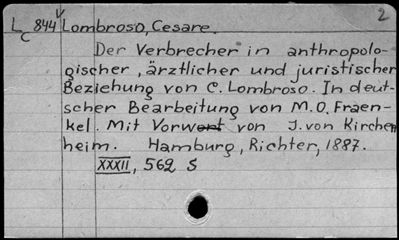 2
LC 844 V Lombroso, Cesare.
Der Verbrecher in anthropolo-
gischer, ärztlicher und juristischer
Beziehung von C. Lombroso. In deut-
scher Bearbeitung von M.O. Fraen-
kel. Mit Vorwort von J. von Kirchen
heim. Hamburg, Richter, 1887.
XXXII, 562 S